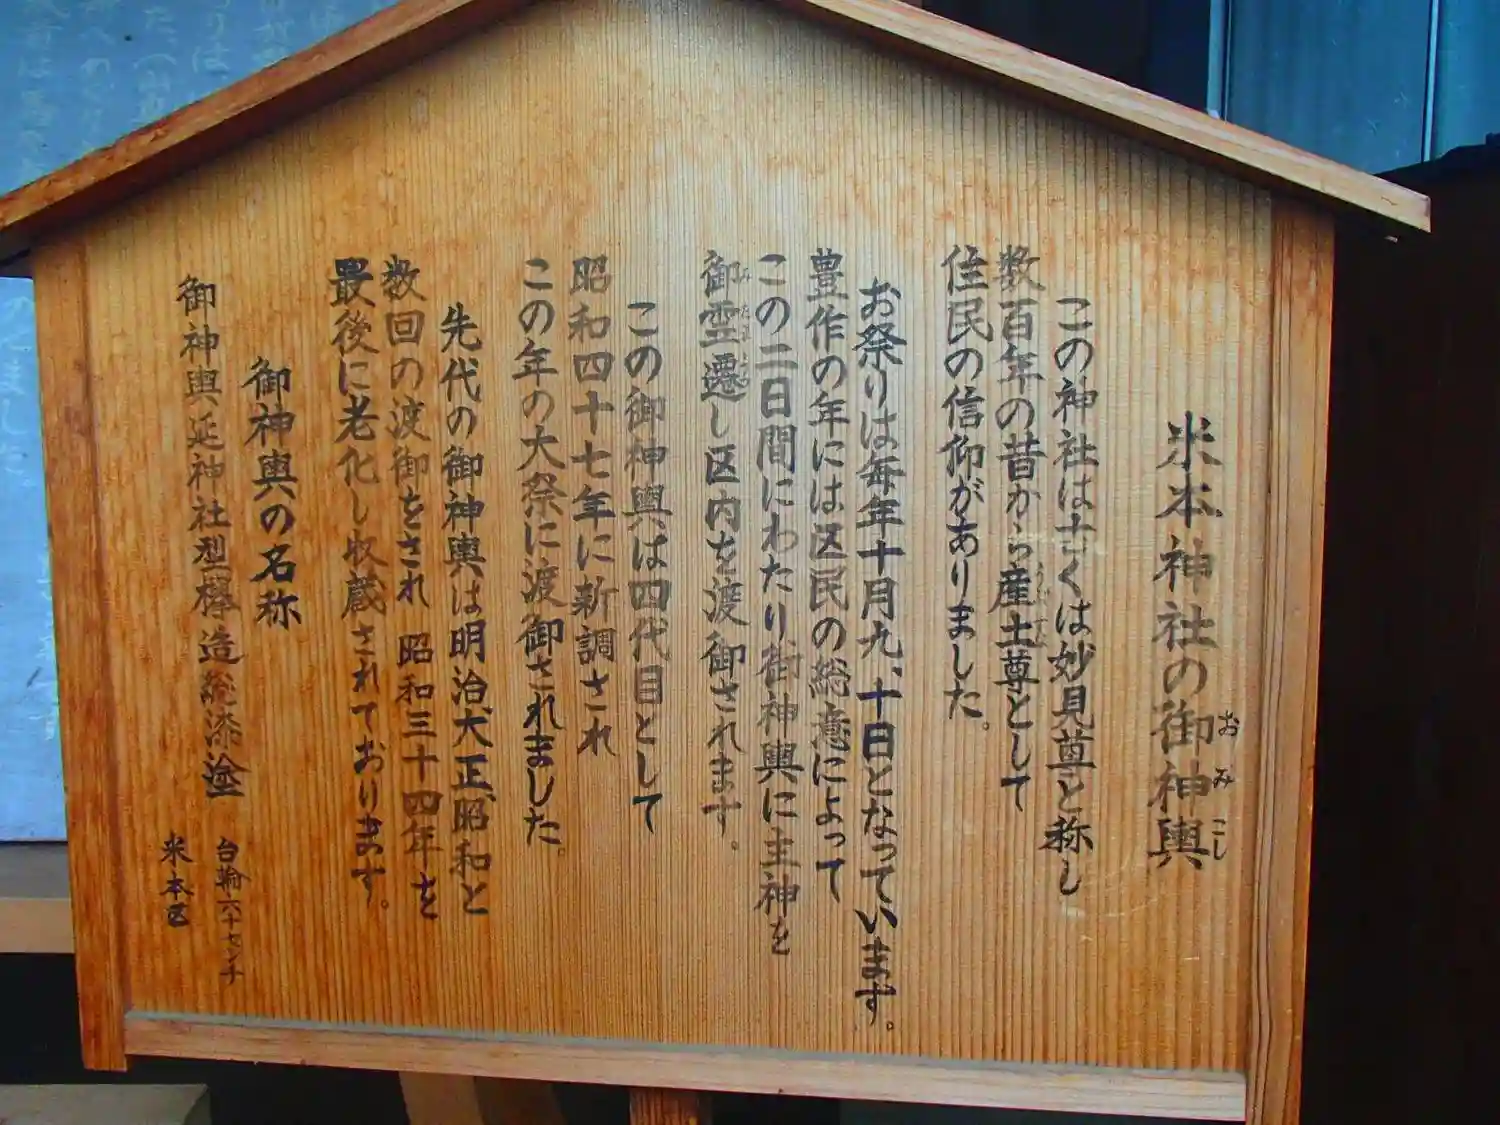 米本神社の御神輿
おみこし
この神社は古くは妙見尊と称し
数百年の昔から産土尊として
住民の信仰がありました。
お祭りは毎年十月九、十日となっています。
豊作の年には区民の総意によって
この二日間にわたり御神輿に主神を
御霊遷し区内を渡御されます。
この御神輿は四代目として
昭和四十七年に新調され
この年の大祭に渡御されました。
先代の御神輿は明治、大正、昭和と
数回の渡御をされ 昭和三十四年を
最後に老化し収蔵されております。
御神輿の名称
御神輿延神社型欅造総漆塗
台輪六十センチ
米本区